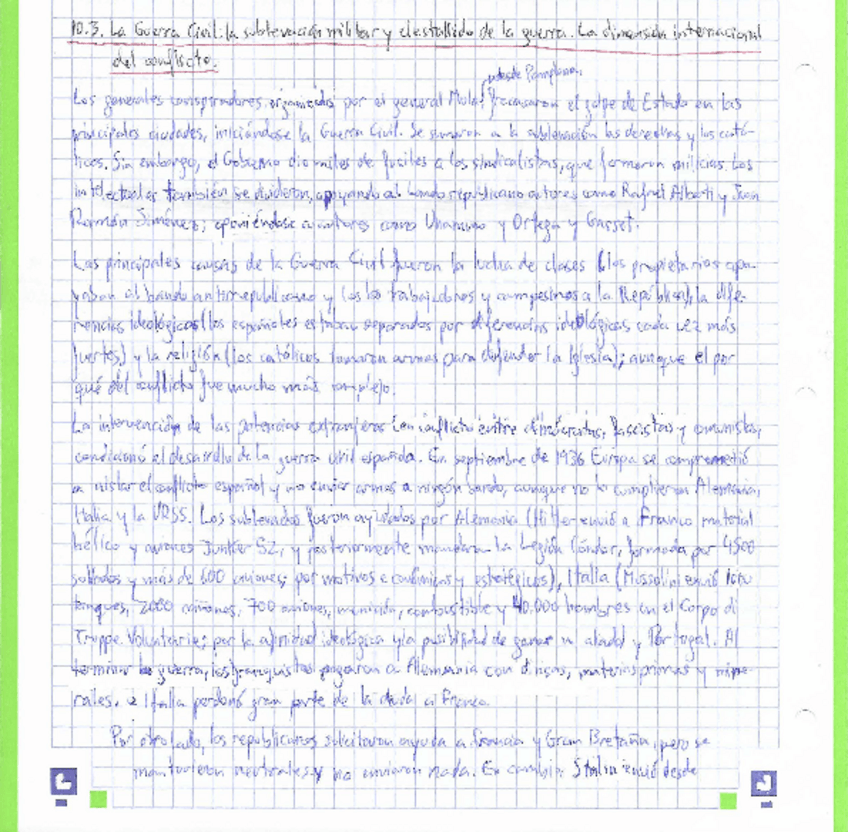 10.3. La Guerra Civil: la sublevación militar y el estallido de la guerra. La dimensión internacional
del conflicto.
desde Pamplona,
Los generales conspiradores organizados por el general Mola, fracasaron el golpe de Estado en las
principales ciudades, iniciándose la Guerra Civil. Se sumaron a la sublevación las derechas y los cató-
licos. Sin embargo, el Gobierno dio miles de fusiles a los sindicalistas, que formaron milicias. Los
intelectuales también se dividieron, apoyando al bando republicano autores como Rafael Alberti y Juan
Ramón Jiménez; oponiéndose autores como Unamuno y Ortega y Gasset.
Las principales causas de la Guerra Civil fueron la lucha de clases (los propietarios apo-
yaban al bando antirrepublicano y los trabajadores y campesinos a la República), la dife-
rencias ideológicas (los españoles estaban separados por diferencias ideológicas cada vez más
fuertes) y la religión (los católicos tomaron armas para defender la Iglesia); aunque el por
qué del conflicto fue mucho más complejo.
La intervención de las potencias extranjeras (en conflicto entre demócratas, fascistas y comunistas,
condicionó el desarrollo de la guerra civil española. En septiembre de 1936 Europa se comprometió
a aislar el conflicto español y no enviar armas a ningún bando, aunque no lo cumplieron Alemania,
Italia y la URSS. Los sublevados fueron ayudados por Alemania (Hitler envió a Franco material
bélico y aviones Junker 52, y posteriormente mandaron la Legión Cóndor, formada por 4500
soldados y más de 600 aviones; por motivos económicos y estratégicos), Italia (Mussolini envió 1000
tanques, 2000 cañones, 700 aviones, munición, combustible y 40.000 hombres en el Corpo di
Truppe Voluntarie; por la afinidad ideológica y la posibilidad de ganar un aliado) y Portugal. Al
terminar la guerra, los franquistas pagaron a Alemania con divisas, materias primas y mine-
rales, e Italia perdonó gran parte de la deuda a Franco.
Por otro lado, los republicanos solicitaron ayuda a Francia y Gran Bretaña, pero se
mantuvieron neutrales y no enviaron nada. En cambio Stalin envió desde